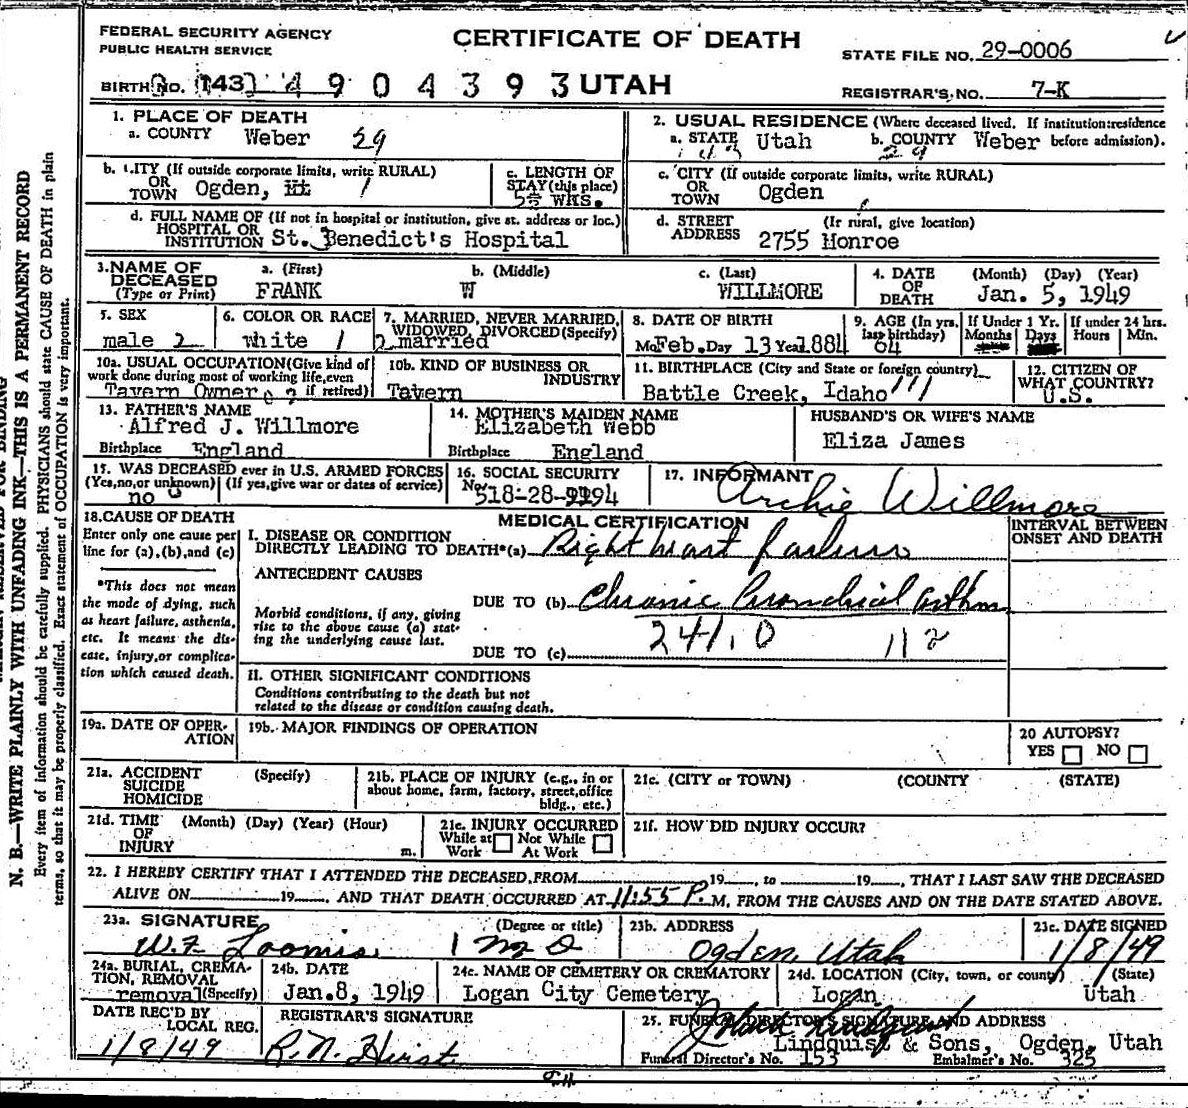 FEDERAL SECURITY AGENCY
PUBLIC HEALTH SERVICE
CERTIFICATE OF DEATH
STATE FILE NO. 29-0006
BIRTH NO. (143) 4904393 UTAH
REGISTRAR'S NO. 7-K
1. PLACE OF DEATH
a. COUNTY Weber 29
2. USUAL RESIDENCE (Where deceased lived. If institution:residence before admission).
a. STATE Utah b. COUNTY Weber
29
b. CITY (If outside corporate limits, write RURAL)
OR
TOWN Ogden, 1
c. LENGTH OF
STAY (this place)
WKS.
c. CITY (If outside corporate limits, write RURAL)
OR
TOWN Ogden
d. FULL NAME OF (If not in hospital or institution, give st. address or loc.)
HOSPITAL OR
INSTITUTION St. Benedict's Hospital
d. STREET (If rural, give location)
ADDRESS 2755 Monroe
3. NAME OF DECEASED
(Type or Print)
a. (First)
FRANK
b. (Middle)
W
c. (Last)
WILLMORE
4. DATE OF DEATH
(Month) (Day) (Year)
Jan. 5, 1949
5. SEX
male 2
6. COLOR OR RACE
white 1
7. MARRIED, NEVER MARRIED,
WIDOWED, DIVORCED (Specify)
2 married
8. DATE OF BIRTH
Mo Feb. Day 13 Year 1884
9. AGE (In yrs. last birthday)
64
If Under 1 Yr.
Months Days
If under 24 hrs.
Hours Min.
10a. USUAL OCCUPATION (Give kind of
work done during most of working life, even
if retired)
Tavern Owner
10b. KIND OF BUSINESS OR
INDUSTRY
Tavern
11. BIRTHPLACE (City and State or foreign country)
Battle Creek, Idaho
12. CITIZEN OF
WHAT COUNTRY?
U.S.
13. FATHER'S NAME
Alfred J. Willmore
Birthplace England
14. MOTHER'S MAIDEN NAME
Elizabeth Webb
Birthplace England
HUSBAND'S OR WIFE'S NAME
Eliza James
15. WAS DECEASED ever in U.S. ARMED FORCES
(Yes, no, or unknown) (If yes, give war or dates of service)
no
16. SOCIAL SECURITY
No. 518-28-
17. INFORMANT
Archie Willmore
18. CAUSE OF DEATH
Enter only one cause per
line for (a), (b), and (c)
*This does not mean
the mode of dying, such
as heart failure, asthenia,
etc. It means the dis-
ease, injury, or complica-
tion which caused death.
MEDICAL CERTIFICATION
INTERVAL BETWEEN
ONSET AND DEATH
I. DISEASE OR CONDITION
DIRECTLY LEADING TO DEATH*(a) Right heart failure
ANTECEDENT CAUSES
DUE TO (b) Chronic Bronchial Asthma
Morbid conditions, if any, giving
rise to the above cause (a) stat-
ing the underlying cause last.
241.0 112
DUE TO (c)
II. OTHER SIGNIFICANT CONDITIONS
Conditions contributing to the death but not
related to the disease or condition causing death.
19a. DATE OF OPER-
ATION
19b. MAJOR FINDINGS OF OPERATION
20 AUTOPSY?
YES NO
21a. ACCIDENT
SUICIDE
HOMICIDE
(Specify)
21b. PLACE OF INJURY (e.g., in or
about home, farm, factory, street, office
bldg., etc.)
21c. (CITY or TOWN) (COUNTY) (STATE)
21d. TIME (Month) (Day) (Year) (Hour)
OF
INJURY m.
21e. INJURY OCCURRED
While at Not While
Work At Work
21f. HOW DID INJURY OCCUR?
22. I HEREBY CERTIFY THAT I ATTENDED THE DECEASED, FROM 19 , to 19 , THAT I LAST SAW THE DECEASED
ALIVE ON 19 , AND THAT DEATH OCCURRED AT 11:55 P. M, FROM THE CAUSES AND ON THE DATE STATED ABOVE.
23a. SIGNATURE (Degree or title)
W.F. Loomis MD
23b. ADDRESS
Ogden, Utah
23c. DATE SIGNED
1/8/49
24a. BURIAL, CREMA-
TION, REMOVAL
removal (Specify)
24b. DATE
Jan. 8, 1949
24c. NAME OF CEMETERY OR CREMATORY
Logan City Cemetery
24d. LOCATION (City, town, or county) (State)
Logan Utah
DATE REC'D BY
LOCAL REG.
1/8/49
REGISTRAR'S SIGNATURE
R.N. Hirst
25. FUNERAL DIRECTOR'S SIGNATURE AND ADDRESS
Lindquist & Sons, Ogden, Utah
Funeral Director's No. 153 Embalmer's No. 325
N. B.—WRITE PLAINLY WITH UNFADING INK—THIS IS A PERMANENT RECORD
Every item of information should be carefully supplied. PHYSICIANS should state CAUSE OF DEATH in plain
terms, so that it may be properly classified. Exact statement of OCCUPATION is very important.